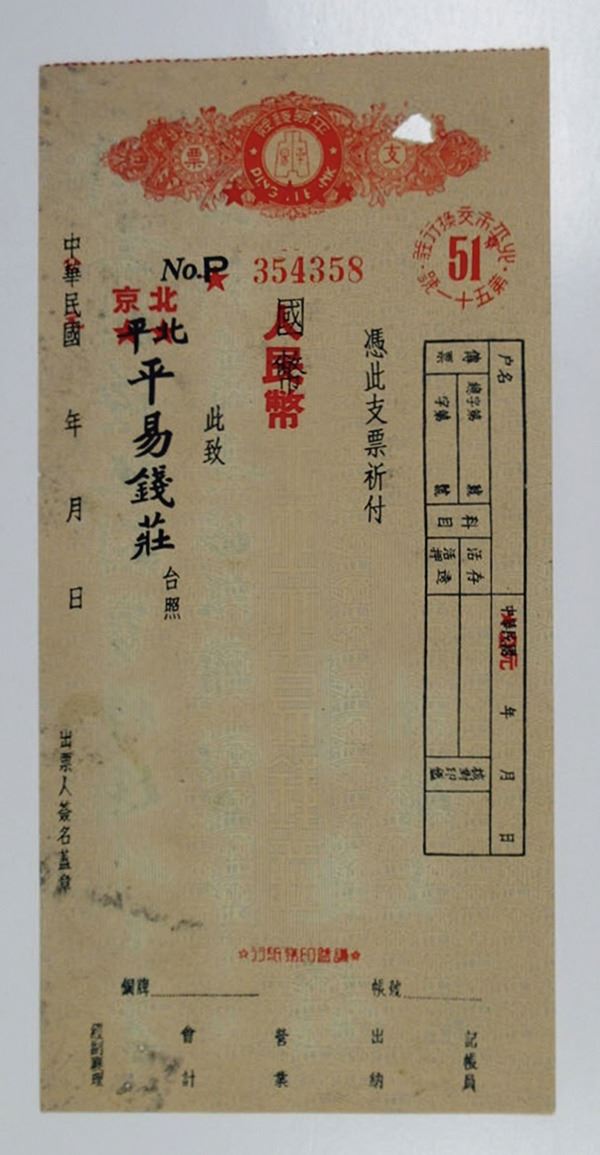 平易錢莊
支票
PING IE
北平市交換行莊
第五十一號
51
No.P 354358
户名
中華民國 年 月 日
公元
傳票
總字第 號
字第 號
科目
活存
活押透
核對印鑑
憑此支票祈付
國幣
人民幣
此致
北平
北京
平易錢莊
台照
中華民國 年 月 日
出票人簽名蓋章
銅牌
帳號
經副襄理
會計
營業
出納
記帳員